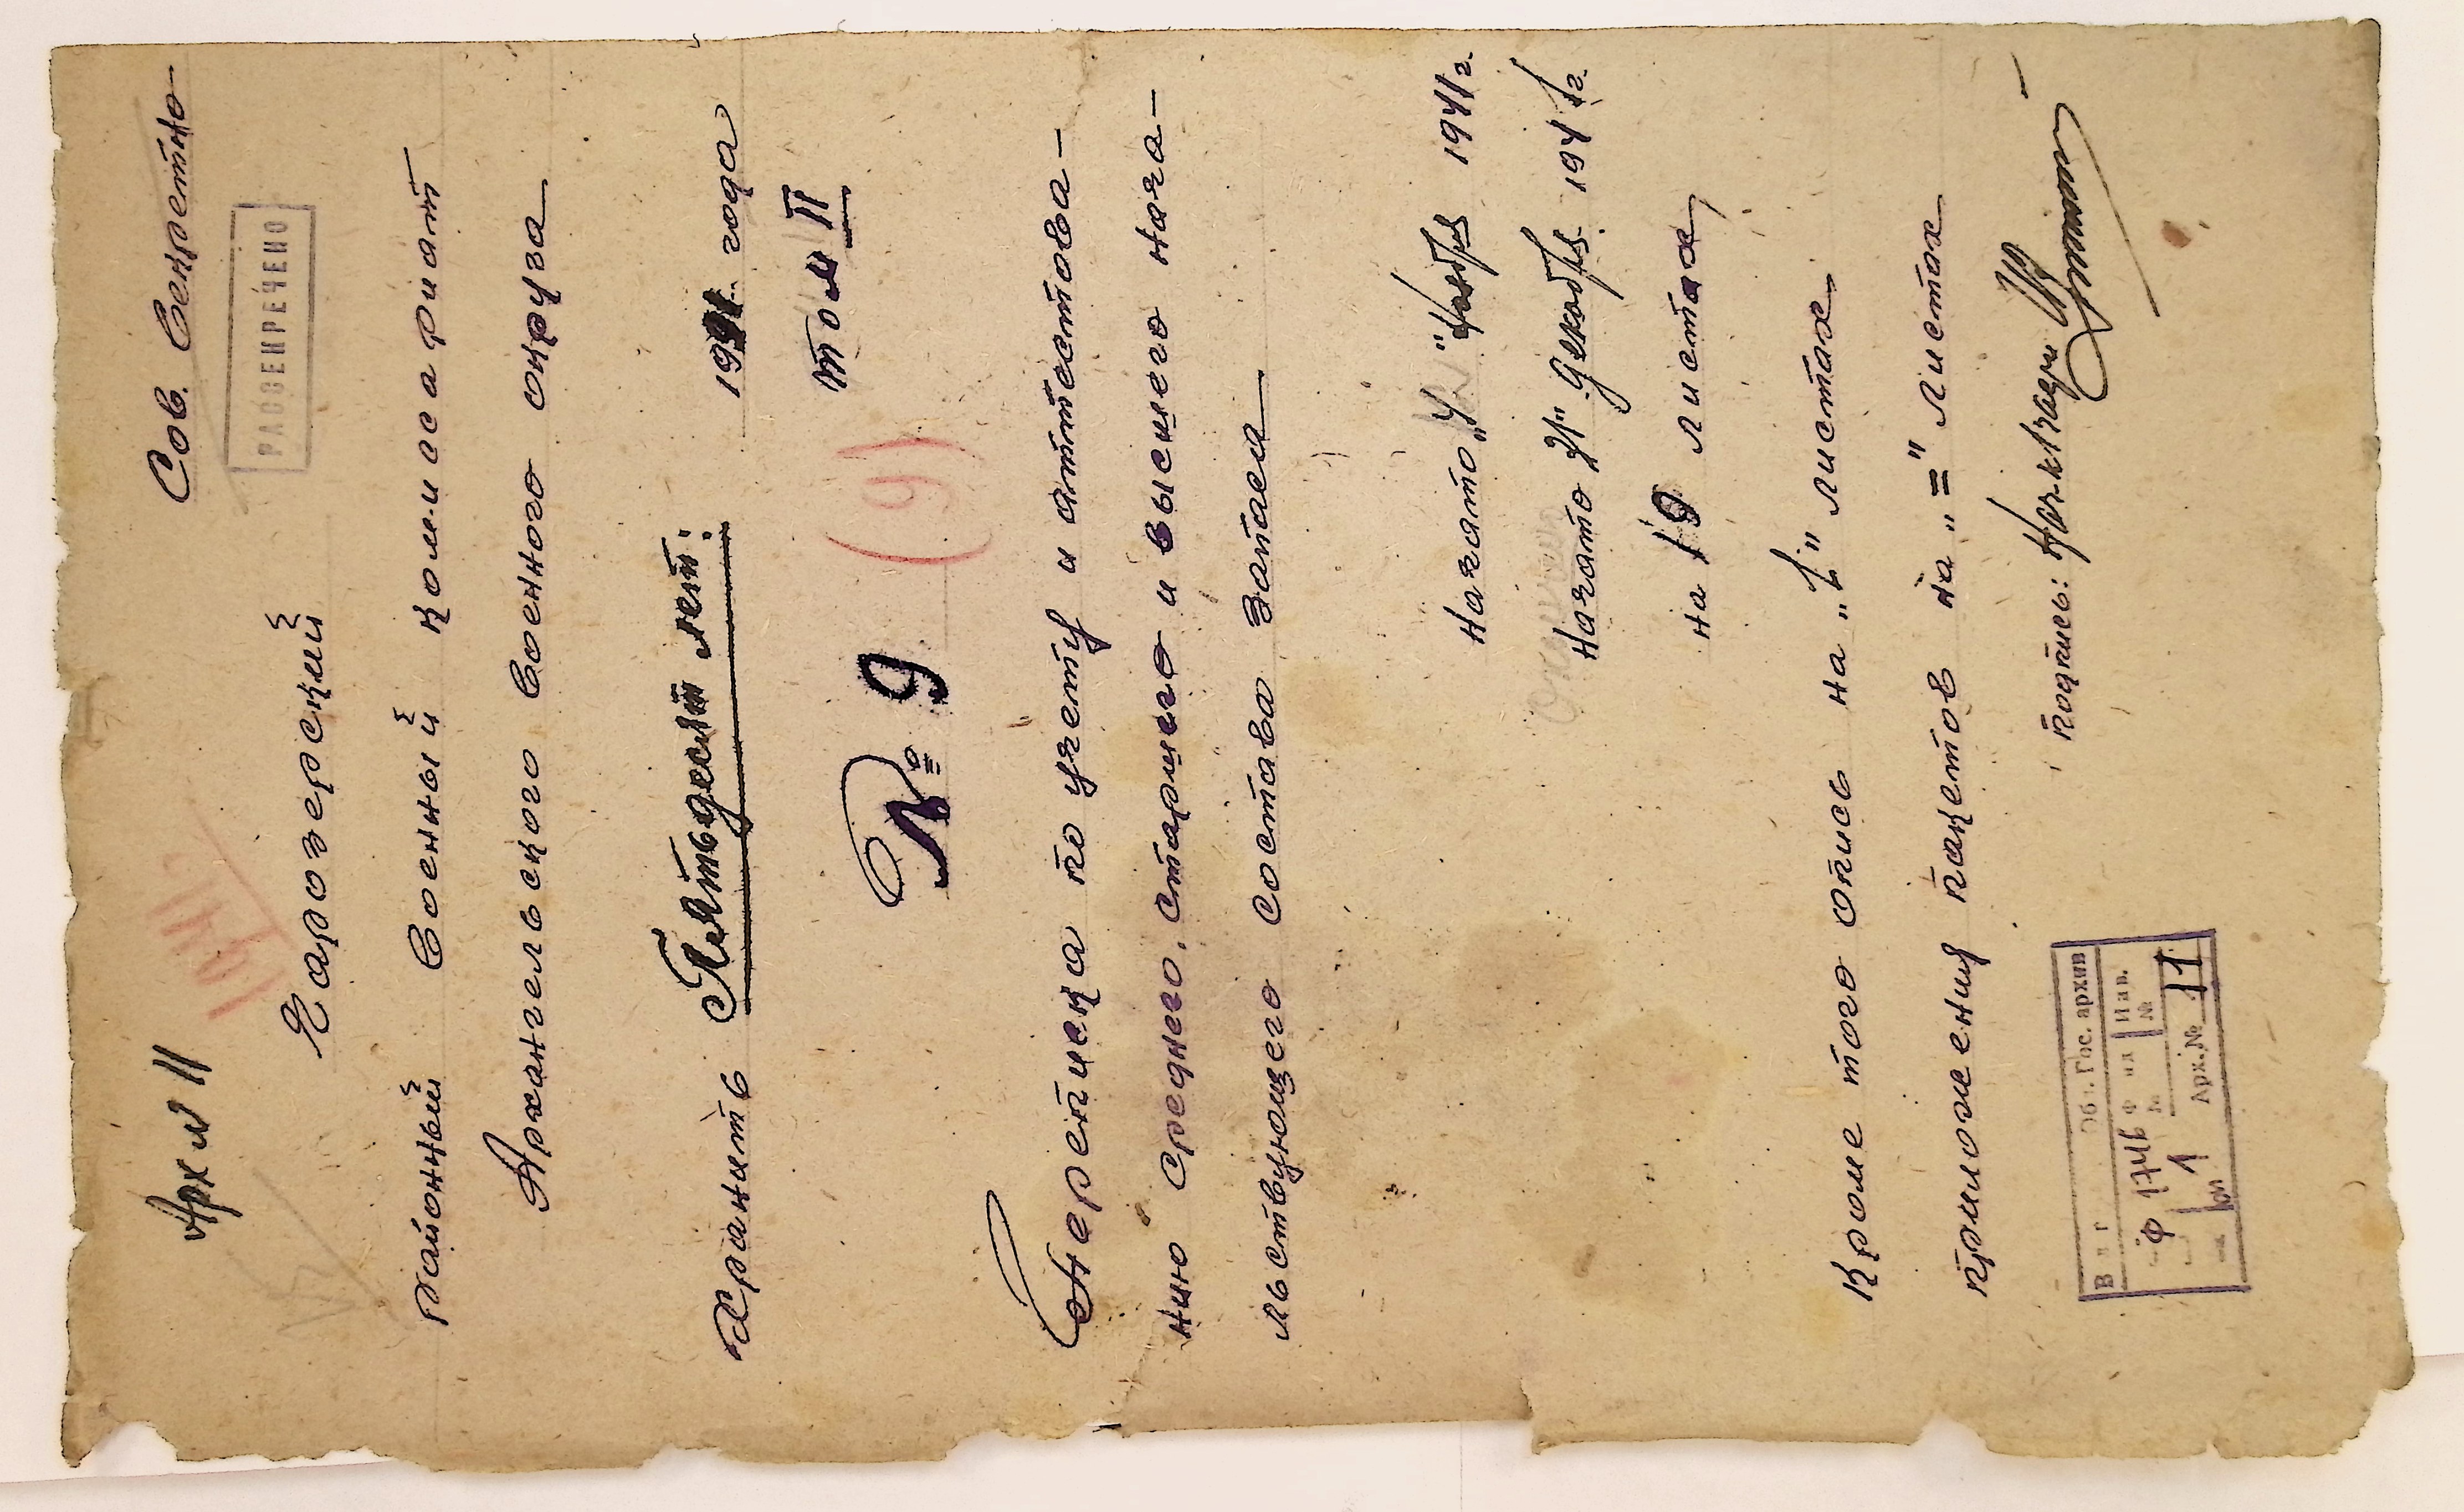 Арх № 11
Сов. Секретно
1941г
РАССЕКРЕЧЕНО
Чарозерский
Районный Военный комиссариат
Архангельского Военного округа
Хранить Пятьдесят лет: 1941 года
том II
№ 9 (9)
Переписка по учету и аттестова-
нию среднего, старшего и высшего нача-
льствующего состава запаса
Начато "4" Ноября 1941г.
Начато 31" Декабря 1941г.
на 19 листах
Кроме того опись на "1" листах
приложения пакетов на "=" листах
подпись: Нач. 1 части
Обл. Гос. архив
Ф 1718 Ф Инв.
№ №
1 Арх.№ 11